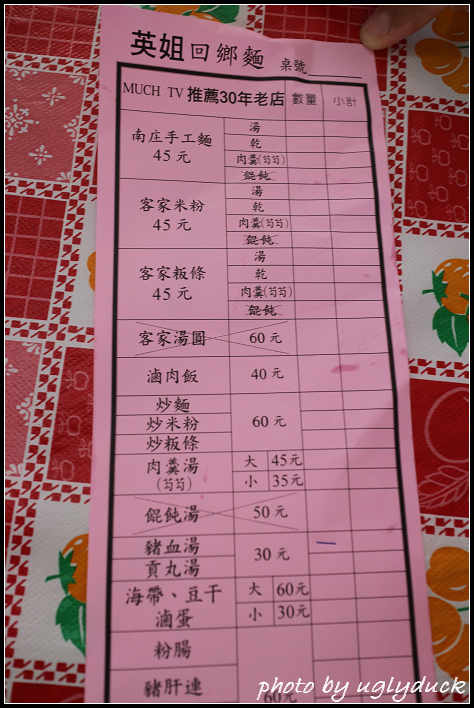 英姐回鄉麵 桌號
MUCH TV 推薦30年老店 數量 小計
南庄手工麵
45元
湯
乾
肉羹(芶芶)
餛飩
客家米粉
45元
湯
乾
肉羹(芶芶)
餛飩
客家粄條
45元
湯
乾
肉羹(芶芶)
餛飩
客家湯圓 60元
滷肉飯 40元
炒麵
炒米粉
炒粄條
60元
肉羹湯
(芶芶)
大 45元
小 35元
餛飩湯 50元
豬血湯
貢丸湯
30元
海帶、豆干
滷蛋
大 60元
小 30元
粉腸
豬肝連
60元
photo by uglyduck